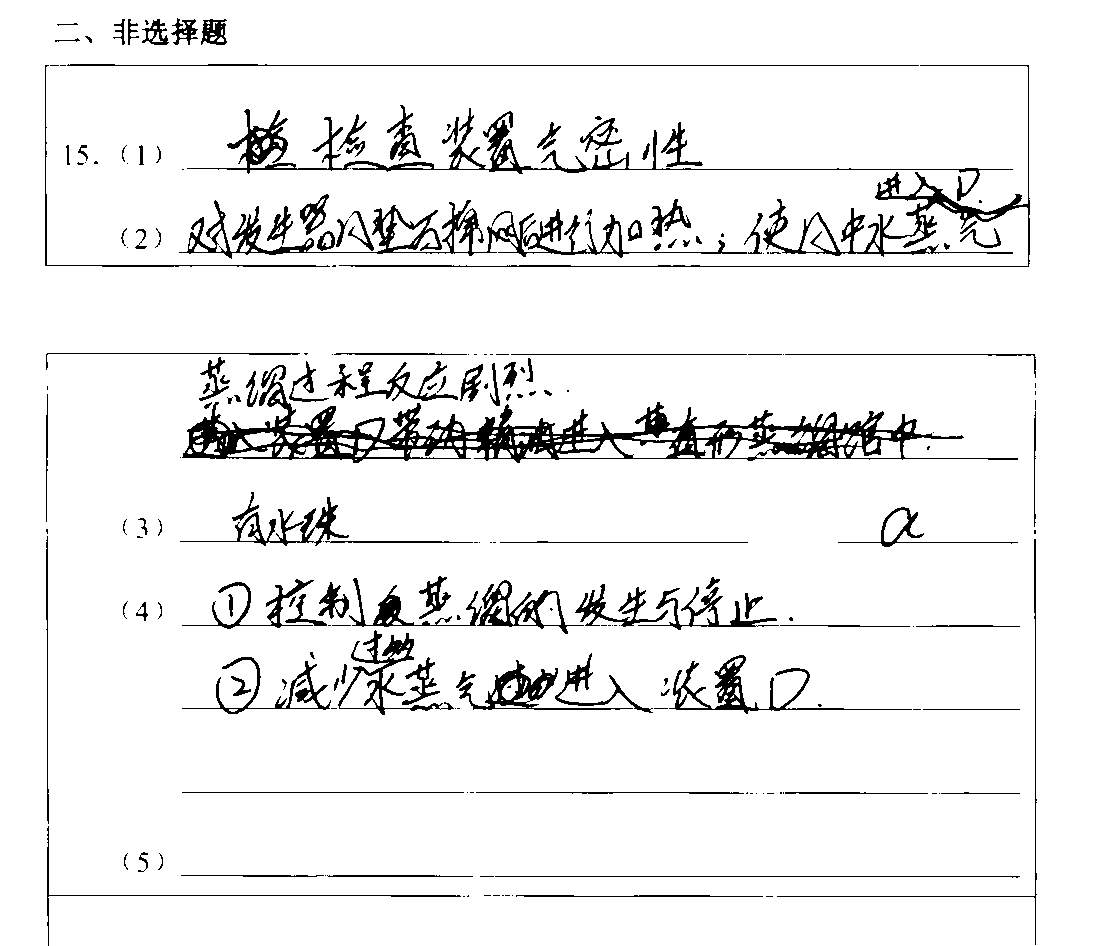 二、非选择题
15.（1） 检查装置气密性
进入D.
（2） 对发生器A垫石棉网后进行加热；使A中水蒸气
蒸馏过程反应剧烈.
（3） 有水珠 a
（4） ①控制蒸馏的发生与停止.
过多
②减少水蒸气进入装置D.
（5）